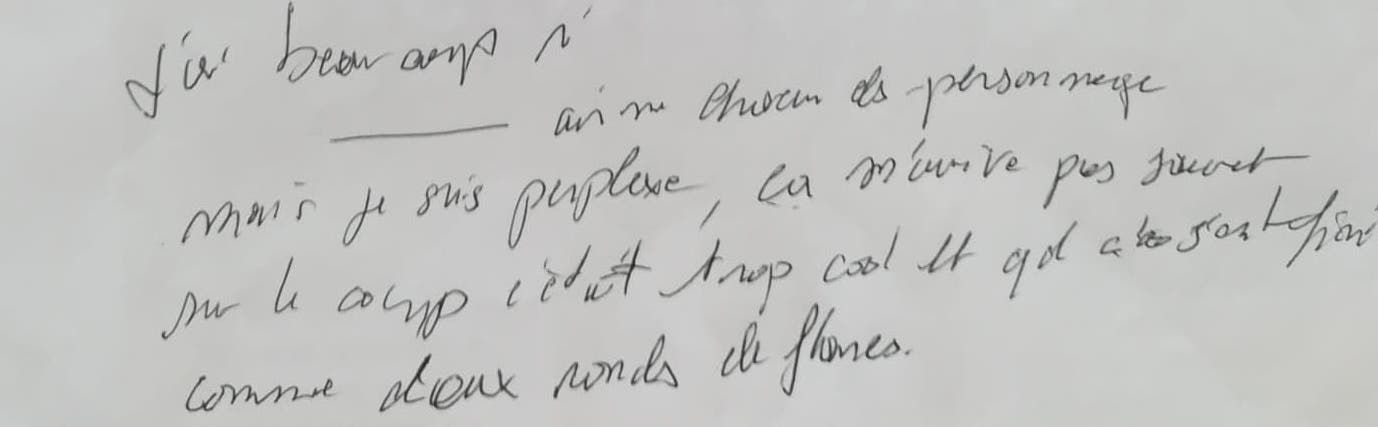 J'ai beaucoup
aimé chacun des personnage
mais je suis perplexe, ça m'arrive pas souvent
sur le coup c'était trop cool et qd
comme deux ronds de flanes.